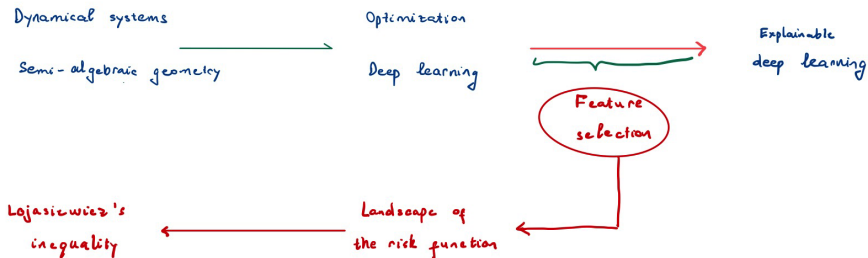 Dynamical systems
Semi-algebraic geometry
Optimization
Deep learning
Explainable
deep learning
Feature
selection
Landscape of
the risk function
Lojasiewicz's
inequality